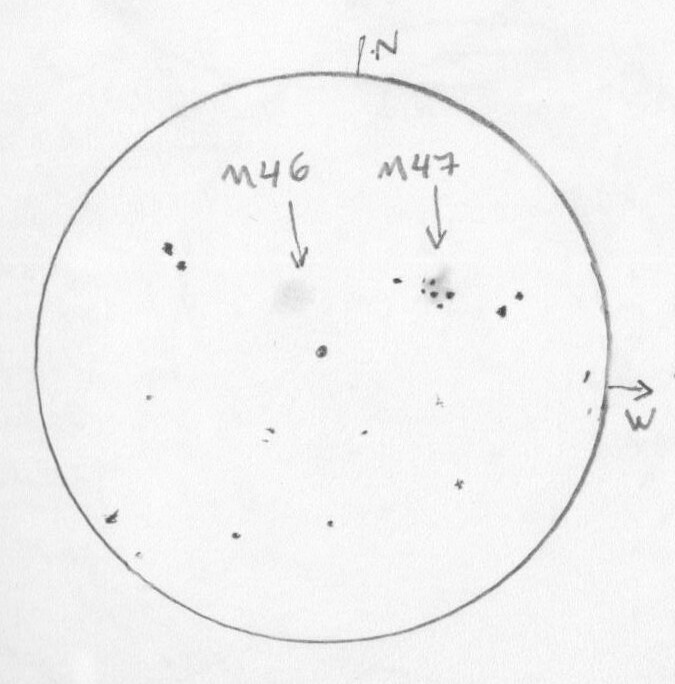 N
M46 M47
W